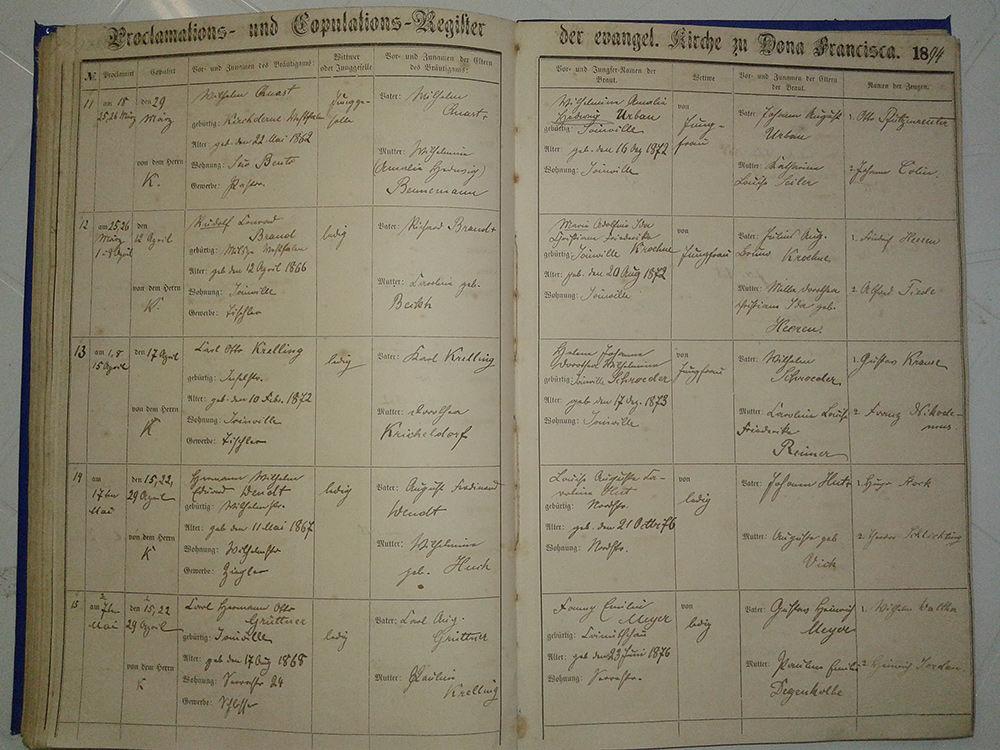 Proclamations- und Copulations-Register der evangel. Kirche zu Dona Francisca. 1894
№ Proclamirt Copulirt Vor- und Zunamen des Bräutigams: Wittwer oder Junggeselle Vor- und Zunamen der Eltern des Bräutigams:
Vor- und Jungfer-Namen der Braut. Wittwe Vor- und Zunamen der Eltern der Braut. Namen der Zeugen.
11 am 18 den 29 Wilhelm Quast Jungge- Vater: Wilhelm
25,26 März März selle Quast+
gebürtig: Kirchderne Westfalen
Alter: geb. den 22 Mai 1862
von dem Herrn Wohnung: Sao Bento Mutter: Wilhelmine
K. Gewerbe: Pastor. (Amalie Hedwig)
Bennemann
Wilhelmine Amalie von Vater: Johann August 1. Otto Pfützenreuter
Hedwig Urban Jung- Urban
gebürtig: Joinville frau
Alter: geb. den 16 Dez 1872
Wohnung: Joinville Mutter: Katharine 2. Johann Colin.
Louise Seiler
12 am 25,26 den Rudolf Conrad ledig Vater: Richard Brand+
März 12 April Brand
1-8 April gebürtig: Westfalen
Alter: geb den 12 April 1866
von dem Herrn Wohnung: Joinville Mutter: Caroline geb.
K. Gewerbe: Tischler
Marie Adolfine Ida von Vater: Julius Aug. 1. Friedrich Heeren
Christiane Friederike Jungfrau Bruno Kroehne
gebürtig: Joinville Kroehne
Alter: geb. den 20 Aug 1872
Wohnung: Joinville Mutter: Dorothea 2. Alfred Tiede
Christiane Ida geb.
Heeren.
13 am 1, 8 den 17 April Carl Otto Krelling ledig Vater: Karl Krelling
15 April gebürtig: Inselstr.
Alter: geb. den 10 Febr. 1872
von dem Herrn Wohnung: Joinville Mutter: Dorothea
K Gewerbe: Tischler Kricheldorf
Helene Johanne von Vater: Wilhelm 1. Gustav
Dorothea Wilhelmine Jungfrau Schroeder
gebürtig: Joinville Schroeder
Alter: geb den 17 Dez. 1873
Wohnung: Joinville Mutter: Caroline Louise 2. Franz Nikode-
Friederike mus.
Reimer
14 am den 15, 22, Hermann Wilhelm ledig Vater: August Ferdinand
17ten 29 April Eduard Wendt Wendt
Mai gebürtig: Wilhelmstr.
Alter: geb den 11 Mai 1867
von dem Herrn Wohnung: Wilhelmstr Mutter: Wilhelmine
K Gewerbe: Ziegler geb. Huch
Louise Auguste Ca- von Vater: Johann 1. Hugo
roline ledig
gebürtig: Nordstr.
Alter: geb. den 21 Octbr 76
Wohnung: Nordstr. Mutter: Auguste geb 2. Schlichting
Vick
15 am 7ten den 15, 22 Carl Hermann Otto ledig Vater: Carl Aug.
Mai 29 April Grüttner Grüttner
gebürtig: Joinville
Alter: geb den 17 Aug 1868
von dem Herrn Wohnung: Serrastr 24 Mutter: Pauline
K Gewerbe: Schlosser Krelling
Fanny Emilie von Vater: Gustav Heinrich 1. Wilhelm Walther
Meyer ledig Meyer
gebürtig: Crimmitschau
Alter: geb den 23 Juni 1876
Wohnung: Serrastr. Mutter: Pauline Emilie 2. Heinrich Jordan
Degenkolbe